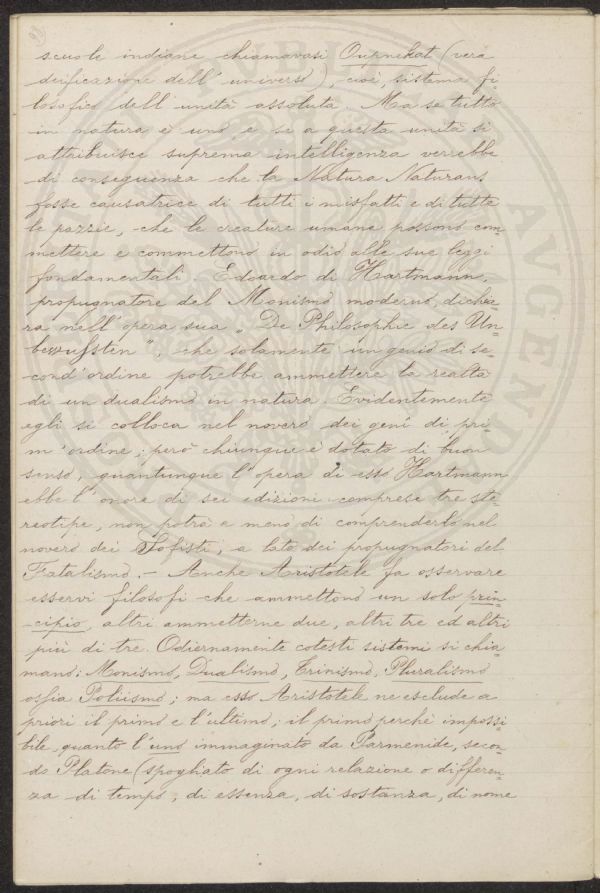 scuole indiane chiamavasi Ournekat (vera
deificazione dell' universo), cioè, sistema fi=
losofico dell' unità assoluta. Ma se tutto
in natura è uno, e se a questa unità si
attribuisce suprema intelligenza verrebbe
di conseguenza che la Natura Naturans
fosse causatrice di tutti i misfatti e di tutte
le pazzie, che le creature umane possono com=
mettere e commettono in odio alle sue leggi
fondamentali. Edoardo di Hartmann,
propugnatore del Monismo moderno, dichia=
ra nell' opera sua „De Philosophie des Un=
bewufsten", che solamente un genio di se=
cond' ordine potrebbe ammettere la realtà
di un dualismo in natura. Evidentemente
egli si colloca nel novero dei geni di pri=
m' ordine; però chiunque è dotato di buon
senso, quantunque l' opera di esso Hartmann
ebbe l' onore di sei edizioni comprese tre ste=
reotipe, non potrà a meno di comprenderlo nel
novero dei Sofisti, a lato dei propugnatori del
Fatalismo. – Anche Aristotele fa osservare
esservi filosofi che ammettono un solo prin=
cipio, altri ammetterne due, altri tre ed altri
più di tre. Odiernamente cotesti sistemi si chia=
mano: Monismo, Dualismo, Trinismo, Pluralismo
ossia Poliismo; ma esso Aristotele ne esclude a
priori il primo e l' ultimo; il primo perchè impossi=
bile, quanto l' uno immaginato da Parmenide, secon=
do Platone (spogliato di ogni relazione o differen=
za di tempo, di essenza, di sostanza, di nome
VRBI
AVGEND